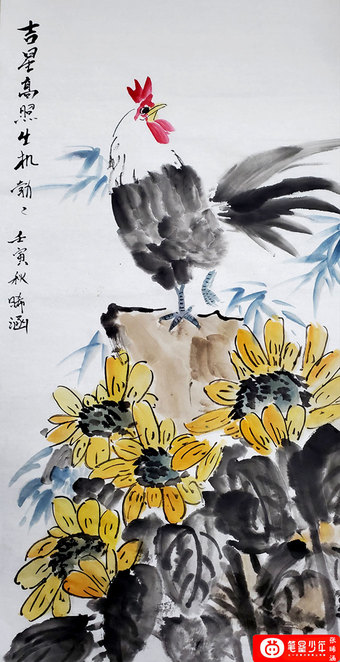 吉星高照生机勃々
壬寅秋晞涵
笔墨少年
张晞涵